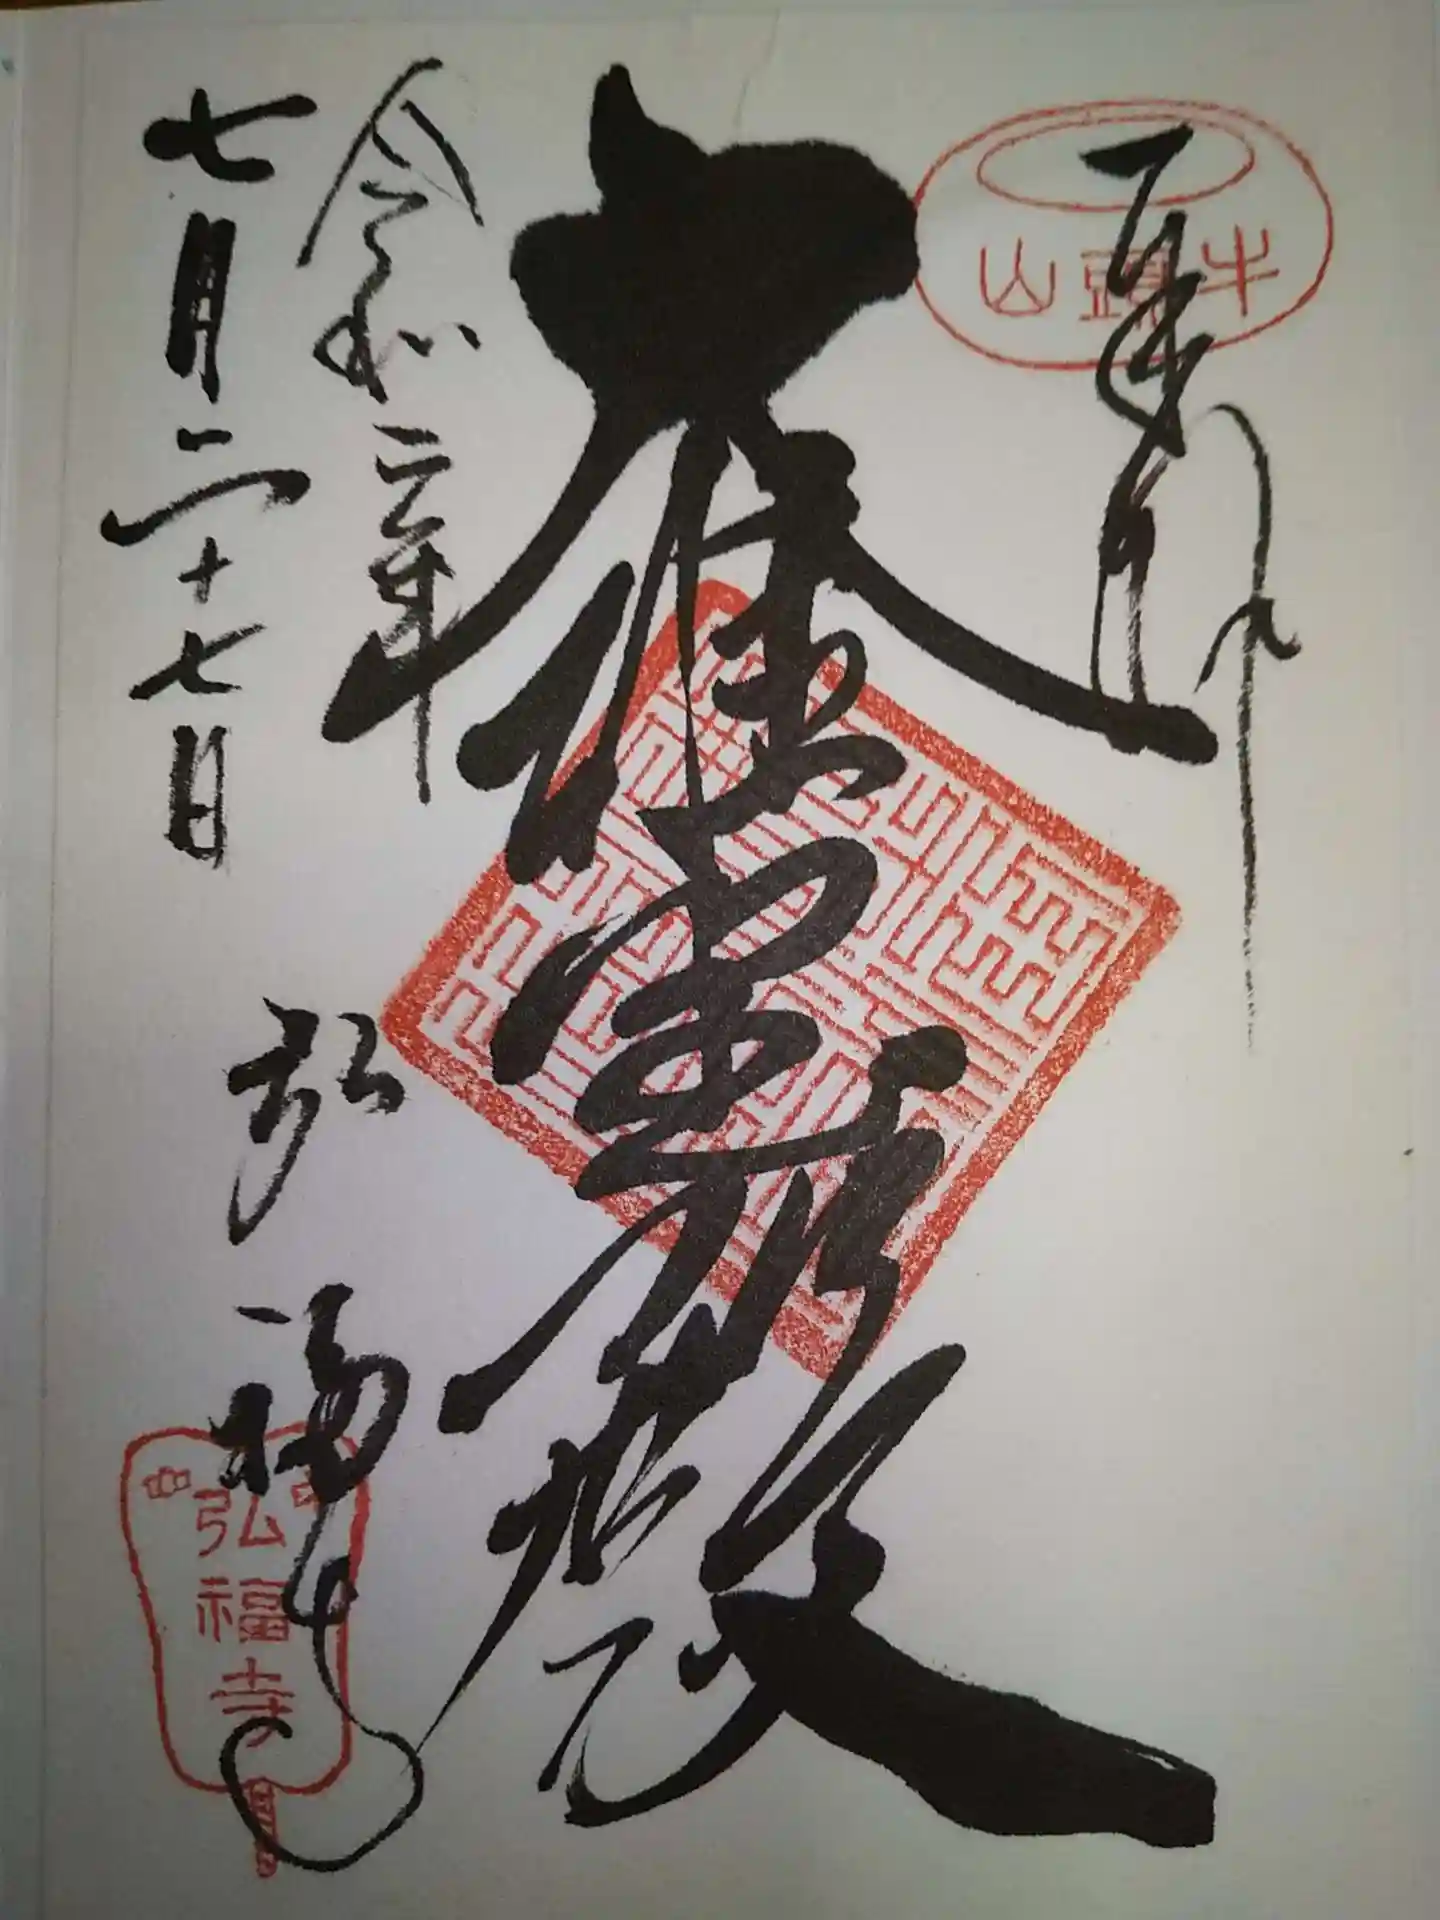 奉拝
牛頭山
大雄寳殿
令和二年
七月二十七日
弘福寺
弘福寺